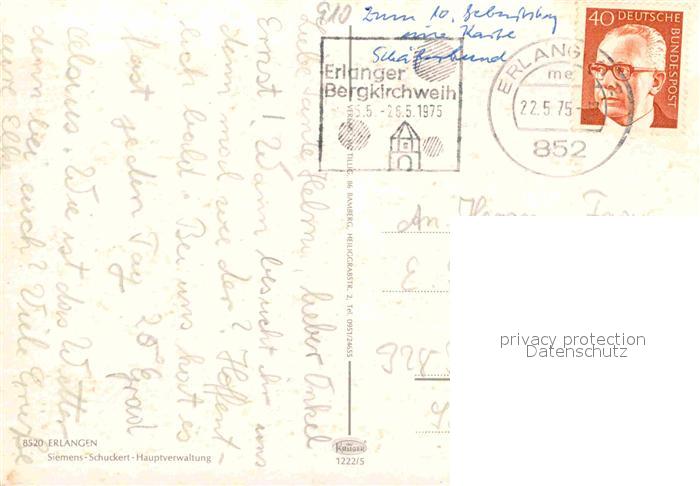 Zum 10. Geburtstag
eine Karte
Schäferhund
40 DEUTSCHE
BUNDESPOST
Erlanger
Bergkirchweih
15.5. - 26.5.1975
ERLANGEN
me
22.5.75
852
Liebe Tante Helmi, lieber Onkel
Ernst! Wann besucht ihr uns
denn mal wieder? Hoffent-
lich bald. Bei uns hat es
fast jeden Tag 20° Grad
Wie ist das Wetter
denn bei euch? Viele Grüße
An
Herrn
E.
VERLAG TILLIG, 86 BAMBERG, HEILIGGRABSTR. 2, Tel. 0951/24655
8520 ERLANGEN
Siemens-Schuckert-Hauptverwaltung
KRÜGER
1222/5
privacy protection
Datenschutz